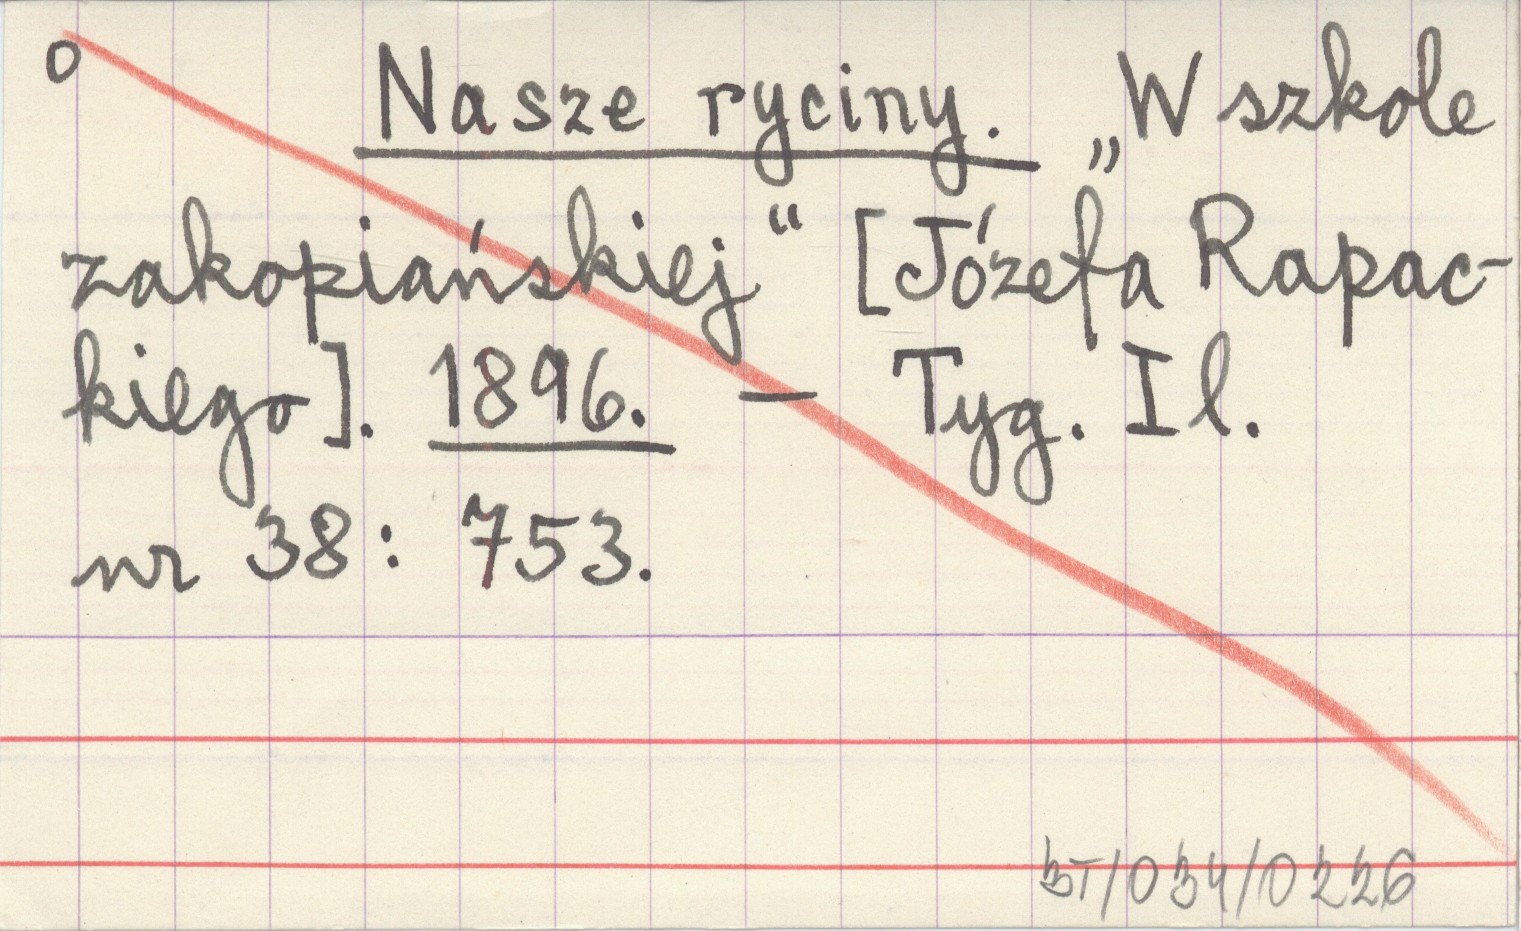 o Nasze ryciny. „W szkole
zakopiańskiej“ [Józefa Rapac-
kiego]. 1896. — Tyg. Il.
nr 38: 753.
BT/034/0226